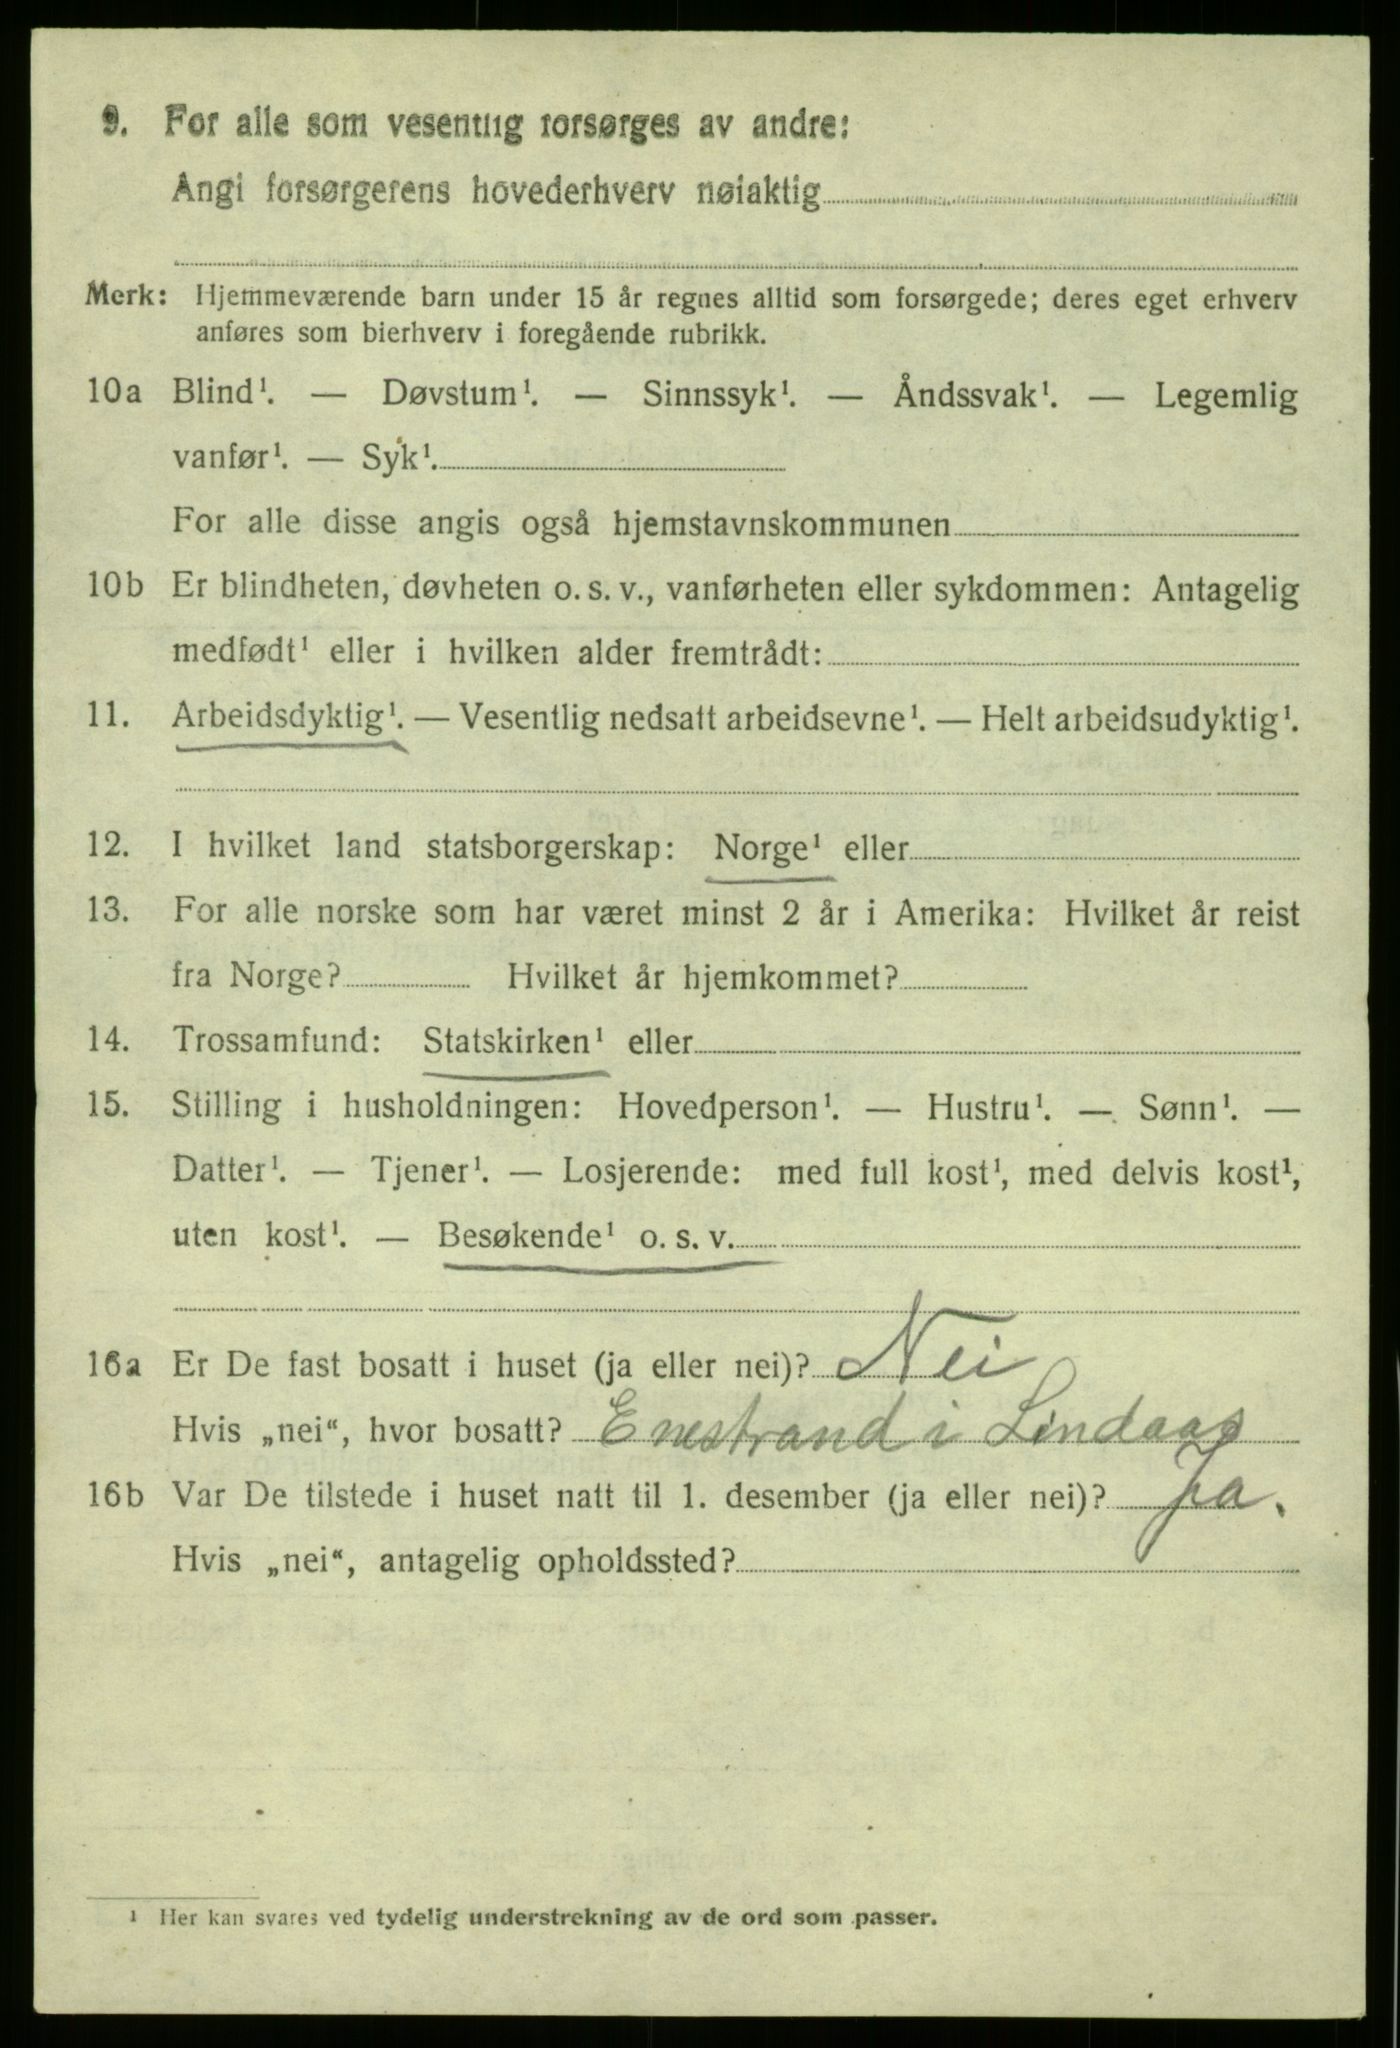 9. For alle som vesentlig forsørges av andre:
Angi forsørgerens hovederhverv nøiaktig
Merk: Hjemmeværende barn under 15 år regnes alltid som forsørgede; deres eget erhverv
anføres som bierhverv i foregående rubrikk.
10a Blind¹. — Døvstum¹. — Sinnssyk¹. — Åndssvak¹. — Legemlig
vanfør¹. — Syk¹.
For alle disse angis også hjemstavnskommunen
10b Er blindheten, døvheten o. s. v., vanførheten eller sykdommen: Antagelig
medfødt¹ eller i hvilken alder fremtrådt:
11. Arbeidsdyktig¹. — Vesentlig nedsatt arbeidsevne¹. — Helt arbeidsudyktig¹.
12. I hvilket land statsborgerskap: Norge¹ eller
13. For alle norske som har været minst 2 år i Amerika: Hvilket år reist
fra Norge? Hvilket år hjemkommet?
14. Trossamfund: Statskirken¹ eller
15. Stilling i husholdningen: Hovedperson¹. — Hustru¹. — Sønn¹. —
Datter¹. — Tjener¹. — Losjerende: med full kost¹, med delvis kost¹,
uten kost¹. — Besøkende¹ o. s. v.
16a Er De fast bosatt i huset (ja eller nei)? Nei
Hvis „nei“, hvor bosatt? Enestrand i Lindaas
16b Var De tilstede i huset natt til 1. desember (ja eller nei)? Ja.
Hvis „nei“, antagelig opholdssted?
¹ Her kan svares ved tydelig understrekning av de ord som passer.